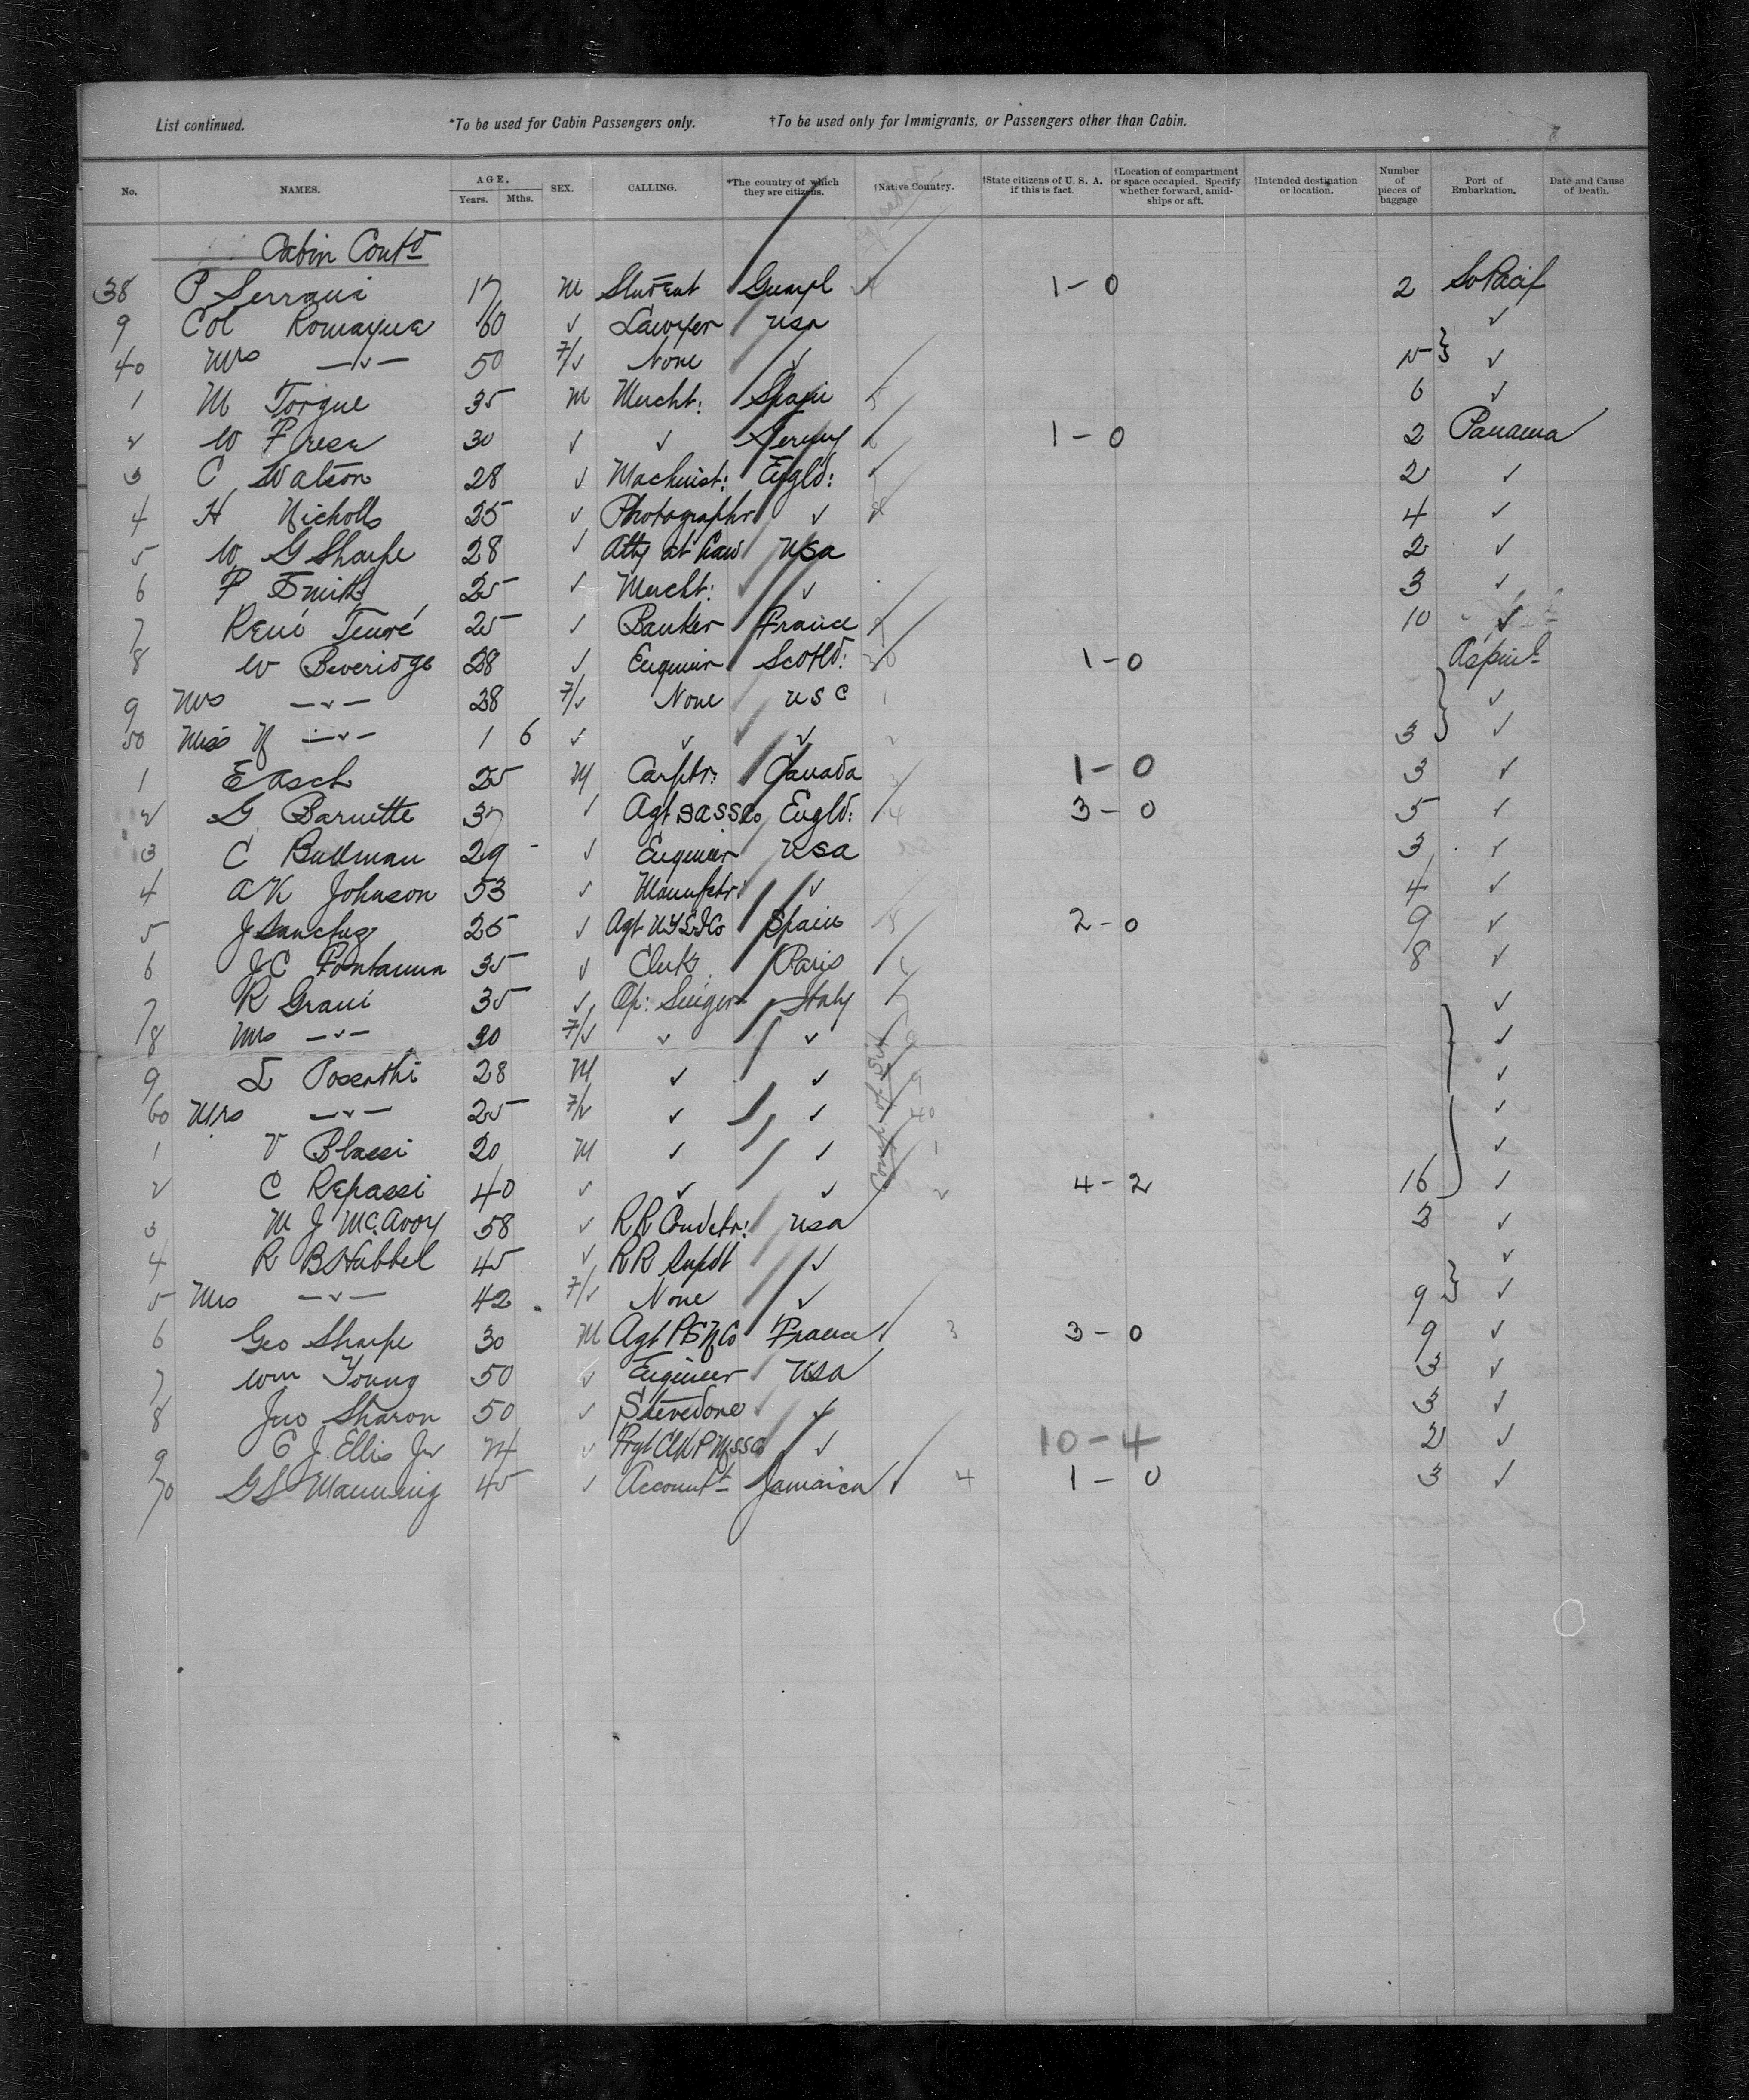 List continued. *To be used for Cabin Passengers only. †To be used only for Immigrants, or Passengers other than Cabin.
No. NAMES. AGE. Years. Mths. SEX. CALLING. *The country of which they are citizens. †Native Country. †State citizens of U. S. A. if this is fact. †Location of compartment or space occupied. Specify whether forward, amidships or aft. †Intended destination or location. Number of pieces of baggage Port of Embarkation. Date and Cause of Death.
Cabin Contd
38 P Serrani 17 M Student 1-0 2 So Pacif
9 Col Romayna 60 ✓ Lawyer USA ✓
40 Mrs —✓— 50 F/✓ None ✓ 15 } ✓
1 M Torque 35 M Mercht: Spain 5 6 ✓
2 W 30 ✓ ✓ Germy 6 1-0 2 Panama
3 C Watson 28 ✓ Machinist: Engld: 7 2 ✓
4 H Nicholls 25 ✓ Photographr ✓ 8 4 ✓
5 W G Sharpe 28 ✓ Atty at Law USA 2 ✓
6 F Smith 25 ✓ Mercht: ✓ 3 ✓
7 René 25 ✓ Banker France 9 10 ✓
8 W Beveridge 28 ✓ Engineir Scotld: 30 1-0 Aspinl
9 Mrs —✓— 28 F/✓ None U S C 1 ✓
50 Miss N —✓— 1 6 ✓ ✓ ✓ 2 3 } ✓
1 E Asch 25 M Carptr: Canada 3 1-0 3 ✓
2 G Barnette 37 ✓ Agt SASSCo Engld: 4 3-0 5 ✓
3 C Bullman 29 ✓ Engineer USA 3 ✓
4 A K Johnson 53 ✓ Manufctr: ✓ 4 ✓
5 J Sanchez 25 ✓ Agt NYLICo Spain 5 2-0 9 ✓
6 J C Fontanna 35 ✓ Clerk Paris 6 8 ✓
7 R Grani 35 ✓ Op: Singer Italy 7 ✓
8 Mrs —✓— 30 F/✓ ✓ ✓ 8 ✓
9 L Posenthi 28 M ✓ ✓ 9 ✓
60 Mrs —✓— 25 F/✓ ✓ ✓ 40 ✓
1 V Blassi 20 M ✓ ✓ 1 ✓
2 C Repassi 40 ✓ ✓ ✓ 2 4-2 16 } ✓
3 M J McAvoy 58 ✓ R R Condctr: USA 3 ✓
4 R B Hubbel 45 ✓ R R Supdt ✓ ✓
5 Mrs —✓— 42 F/✓ None ✓ 9 } ✓
6 Geo Sharpe 30 M Agt PSNCo France 3 3-0 9 ✓
7 Wm Young 50 ✓ Engineer USA 3 ✓
8 Jno Sharon 50 ✓ Stevedore ✓ 3 ✓
9 C J Ellis Jr 24 ✓ Frgt Clk PMSSCo ✓ 10-4 2 ✓
70 G S Manning 45 ✓ Accountt Jamaica 4 1-0 3 ✓